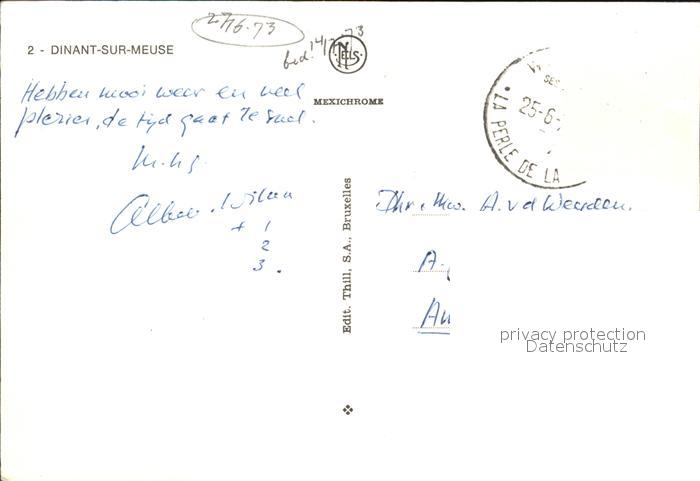 27/6.73
2 - DINANT-SUR-MEUSE
bed. 14/7 73
NELS
MEXICHROME
Hebben mooi weer en veel
plezier, de tijd gaat te snel.
m.h.g.
+ 1
2
3.
Edit. Thill, S.A., Bruxelles
25-6-
LA PERLE DE LA
Dhr. Mw. A. v d Weerden.
A.
An
privacy protection
Datenschutz